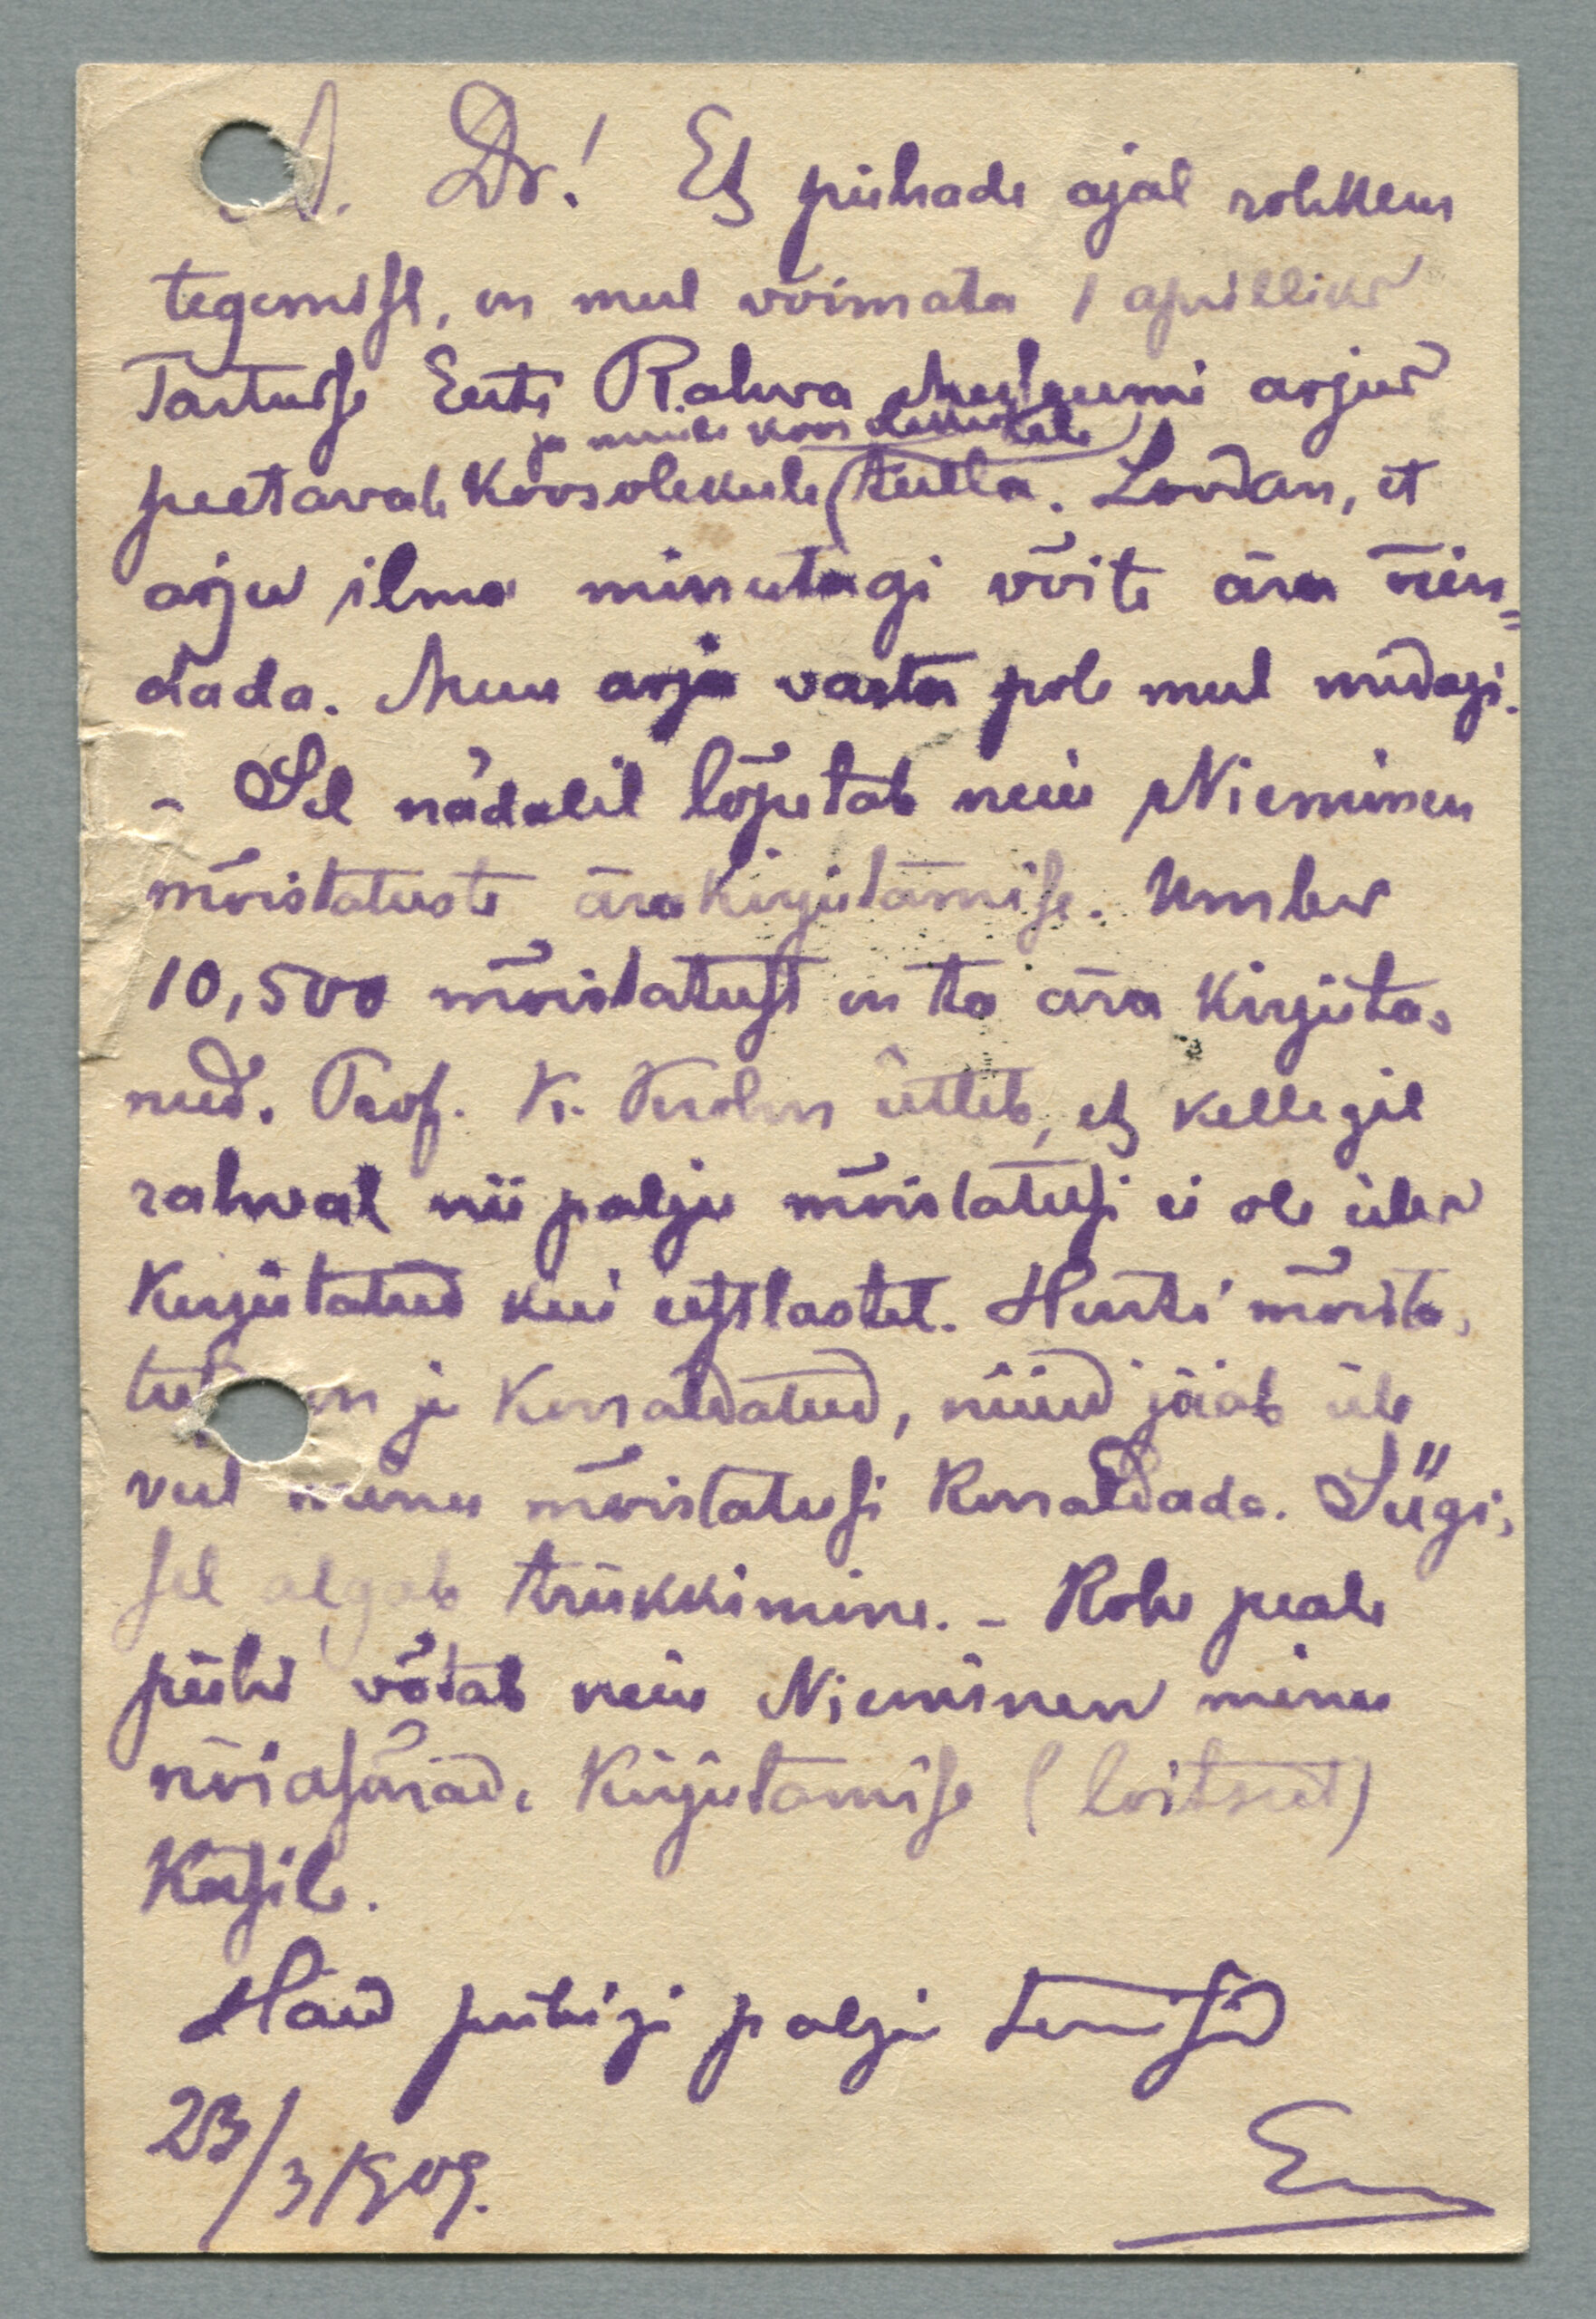 A. Dr.! Et pühade ajal rohkem
tegemist, on mul võimata 1 aprilliks
Tartusse Eesti Rahva Museumi asjus
ja muule koosolekutele
peetavale koosolekule (tulla. Loodan, et
asju ilma minutagi võite ära õien=
dada. Muu asja vasta pole mul midagi.
- Sel nädalil lõpetab neiu Nieminen
mõistatuste ärakirjutamise. Umbes
10,500 mõistatust on ta ära kirjuta-
nud. Prof. K. Krohn ütleb, et kellegil
rahval nii palju mõistatusi ei ole üles
kirjutatud kui eestlastel. Hurti mõista-
tused on ju korraldatud, nüüd jääb üle
veel minu mõistatusi korraldada. Sügi-
sel algab trükkimine. - Kohe peale
pühi võtab neiu Nieminen minu
nõiasõnad. kirjutamise (loitsut)
käsile.
Häid pühigi palju tervisid
23/3 1909. E